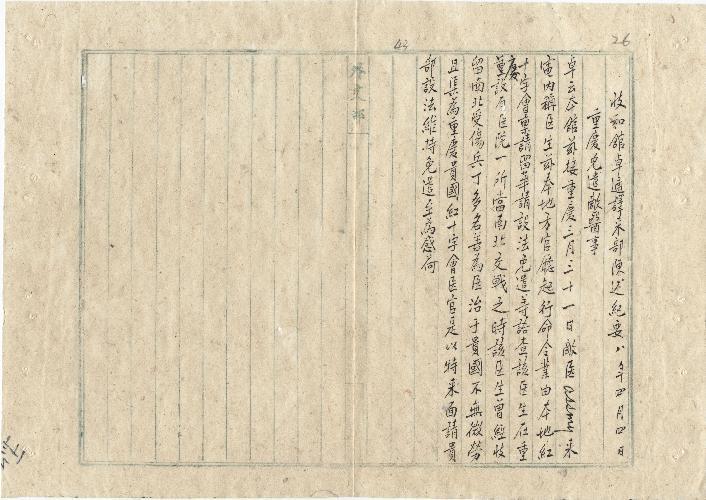 26
43
收和館卓通譯來部陳述紀要 八年四月四日
重慶免遣敵醫事
卓云本館茲接重慶三月三十一日敵医 來
電內稱医生茲奉地方官廳起行命令業由本地紅
十字會稟請留華請設法免遣等語查該医生在重
慶設有医院一所當南北交戰之時該医生曾經收
留南北受傷兵丁多名善為医治于貴國不無微勞
且渠為重慶貴國紅十字會医官是以特來面請貴
部設法維持免遣至為感荷
外交部